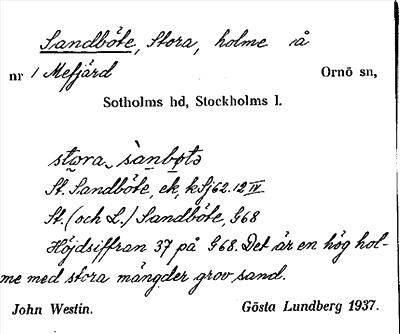 Sandböte, Stora, holme å
nr 1 Mefjärd Ornö sn,
Sotholms hd, Stockholms l.
stora sànbøtə
St. Sandböte, ek, kSj62.12 IV
St. (och L.) Sandböte, G68
Höjdsiffran 37 på G68. Det är en hög hol-
me med stora mängder grov sand.
John Westin. Gösta Lundberg 1937.